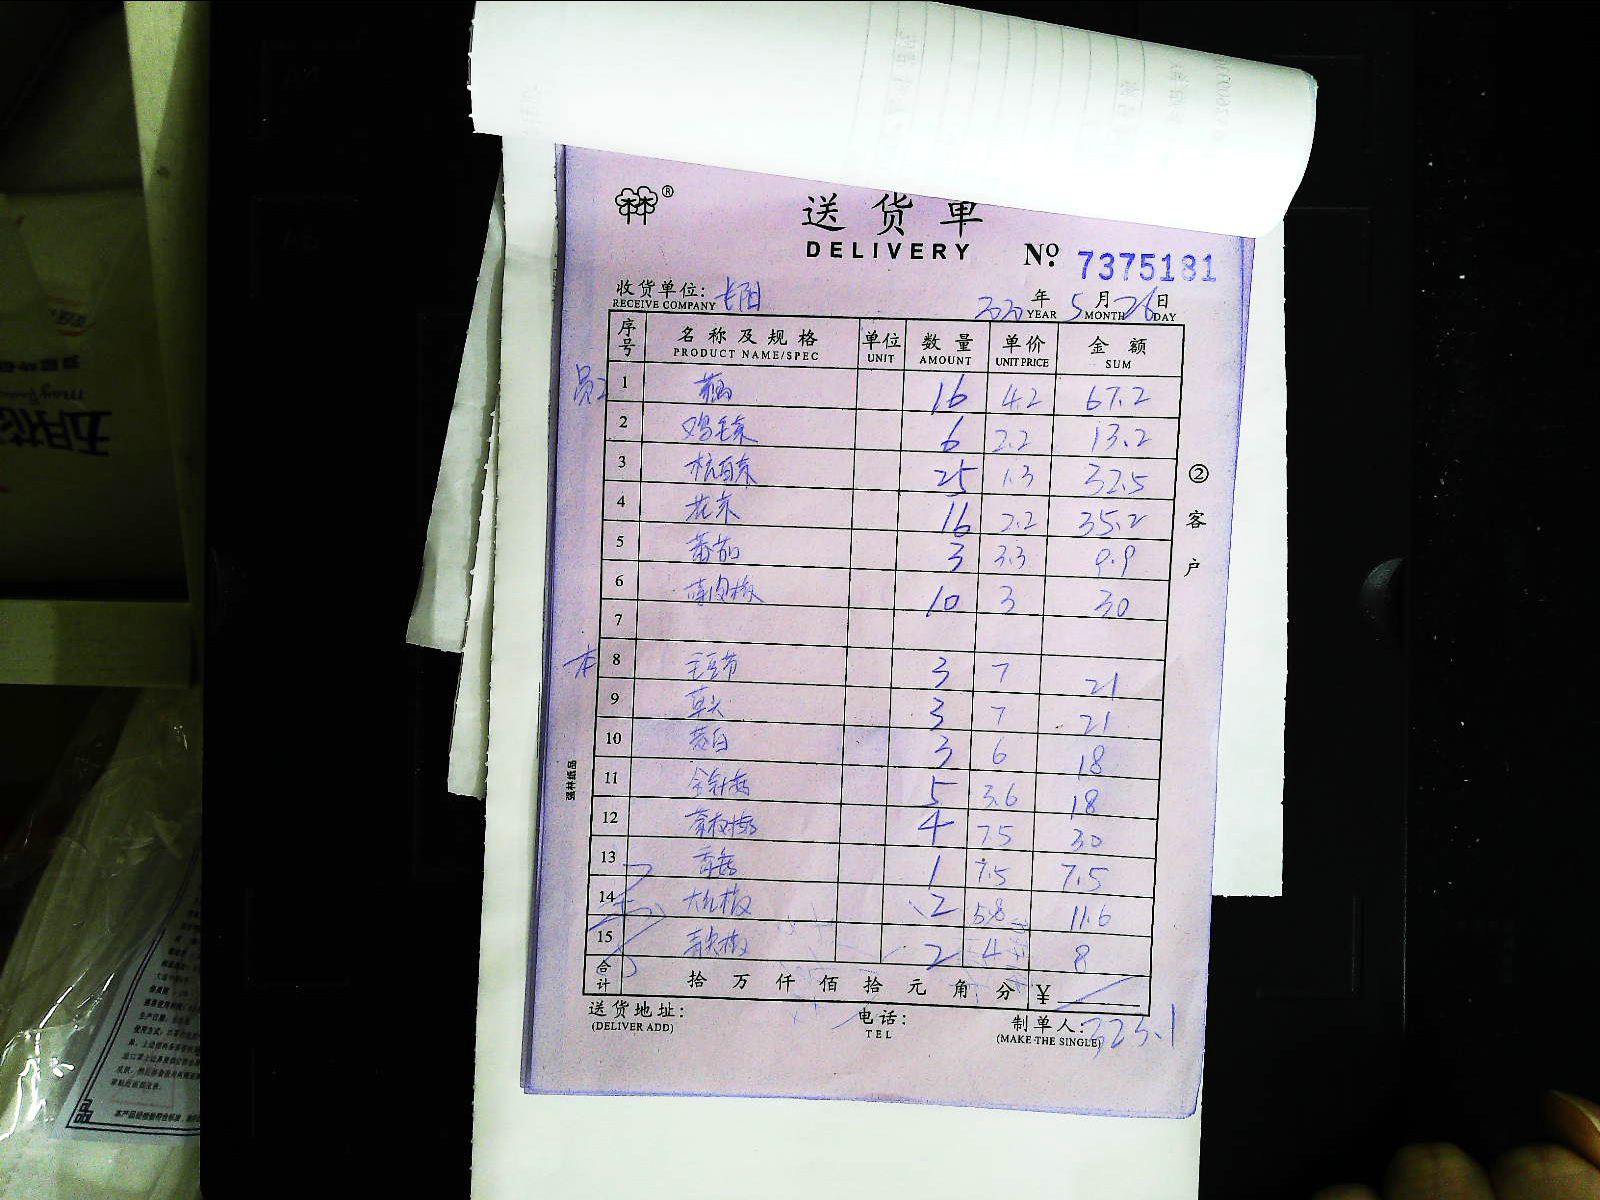 送货单
DELIVERY
No. 7375181
收货单位: 长阳
RECEIVE COMPANY
2020 年 5 月 26 日
YEAR MONTH DAY
序号 名称及规格 单位 数量 单价 金额
PRODUCT NAME/SPEC UNIT AMOUNT UNIT PRICE SUM
1 16 4.2 67.2
2 鸡毛菜 6 2.2 13.2
3 杭白菜 25 1.3 32.5
4 花菜 16 2.2 35.2
5 番茄 3 3.3 9.9
6 薄肉椒 10 3 30
7
8 毛豆节 3 7 21
9 草头 3 7 21
10 茭白 3 6 18
11 金针菇 5 3.6 18
12 4 7.5 30
13 香菇 1 7.5 7.5
14 大红椒 2 5.8 11.6
15 青尖椒 2 4 8
合计 拾 万 仟 佰 拾 元 角 分 ¥
送货地址: 电话: 制单人: 323.1
(DELIVER ADD) TEL (MAKE THE SINGLE)
② 客户
强林纸品